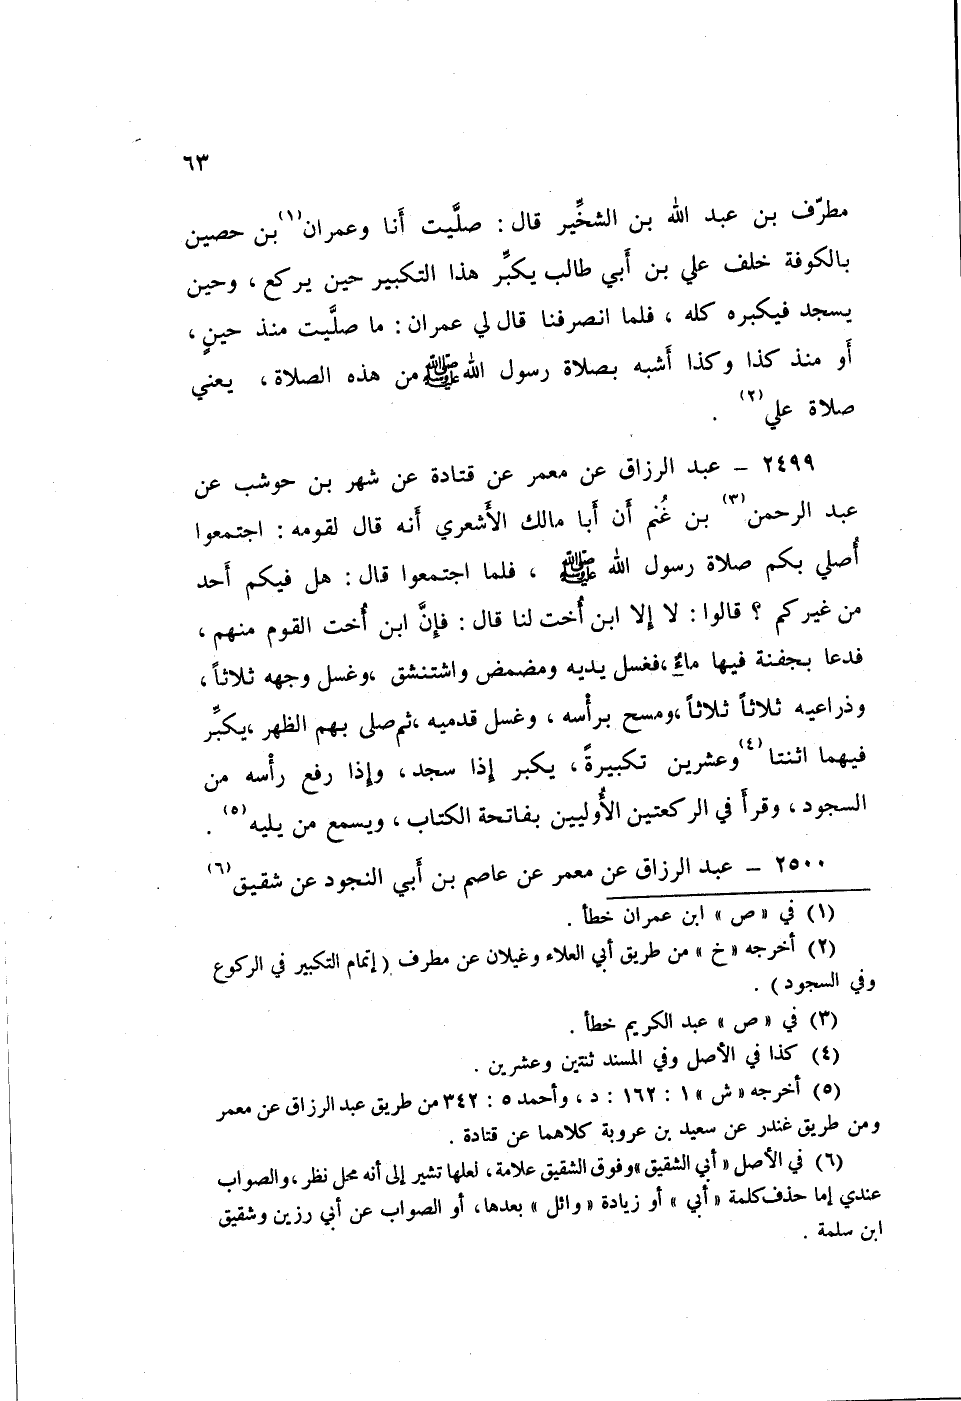 ٦٣
مطرّف بن عبد الله بن الشخِّير قال : صلَّيت أَنا وعمران(١) بن حصين
بالكوفة خلف علي بن أَبي طالب يكبِّر هذا التكبير حين يركع ، وحين
يسجد فيكبره كله ، فلما انصرفنا قال لي عمران : ما صلَّيت منذ حينٍ ،
أَو منذ كذا وكذا أَشبه بصلاة رسول الله ﷺ من هذه الصلاة ، يعني
صلاة علي(٢) .
٢٤٩٩ – عبد الرزاق عن معمر عن قتادة عن شهر بن حوشب عن
عبد الرحمن(٣) بن غُنم أَن أَبا مالك الأَشعري أَنه قال لقومه : اجتمعوا
أُصلي بكم صلاة رسول الله ﷺ ، فلما اجتمعوا قال : هل فيكم أَحد
من غيركم ؟ قالوا : لا إِلا ابن أُخت لنا قال : فإِنَّ ابن أُخت القوم منهم ،
فدعا بجفنة فيها ماءٌ ، فغسل يديه ومضمض واشتنشق ، وغسل وجهه ثلاثاً ،
وذراعيه ثلاثاً ثلاثاً ، ومسح برأْسه ، وغسل قدميه ، ثم صلى بهم الظهر ، يكبِّر
فيهما اثنتا(٤) وعشرين تكبيرةً ، يكبر إِذا سجد ، وإِذا رفع رأْسه من
السجود ، وقرأَ في الركعتين الأُوليين بفاتحة الكتاب ، ويسمع من يليه(٥) .
٢٥٠٠ – عبد الرزاق عن معمر عن عاصم بن أَبي النجود عن شقيق(٦)
(١) في « ص » ابن عمران خطأ .
(٢) أخرجه « خ » من طريق أبي العلاء وغيلان عن مطرف ( إتمام التكبير في الركوع
وفي السجود ) .
(٣) في « ص » عبد الكريم خطأ .
(٤) كذا في الأصل وفي المسند ثنتين وعشرين .
(٥) أخرجه « ش » ١ : ١٦٢ : د ، وأحمد ٥ : ٣٤٢ من طريق عبد الرزاق عن معمر
ومن طريق غندر عن سعيد بن عروبة كلاهما عن قتادة .
(٦) في الأصل « أبي الشقيق » وفوق الشقيق علامة ، لعلها تشير إلى أنه محل نظر ، والصواب
عندي إما حذف كلمة « أبي » أو زيادة « وائل » بعدها ، أو الصواب عن أبي رزين وشقيق
ابن سلمة .